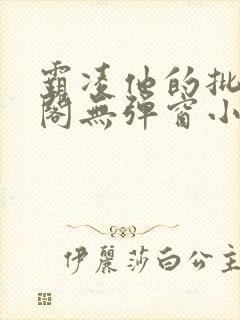 霸凌他的批
閣無彈窗小
伊麗莎白公主